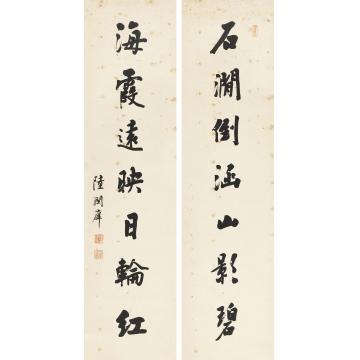 石澗倒涵山影碧
海霞遠映日輪紅
陸潤庠